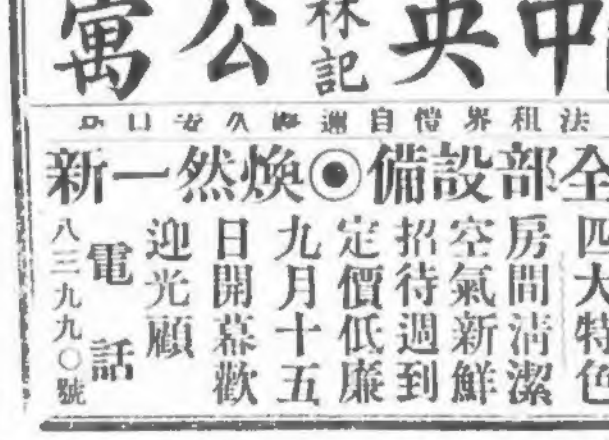 中央林記公寓
法租界愷自邇路久安里口
全部設備◉煥然一新
四大特色
房間清潔
空氣新鮮
招待週到
定價低廉
九月十五
日開幕歡
迎光顧
電話
八三九九〇號